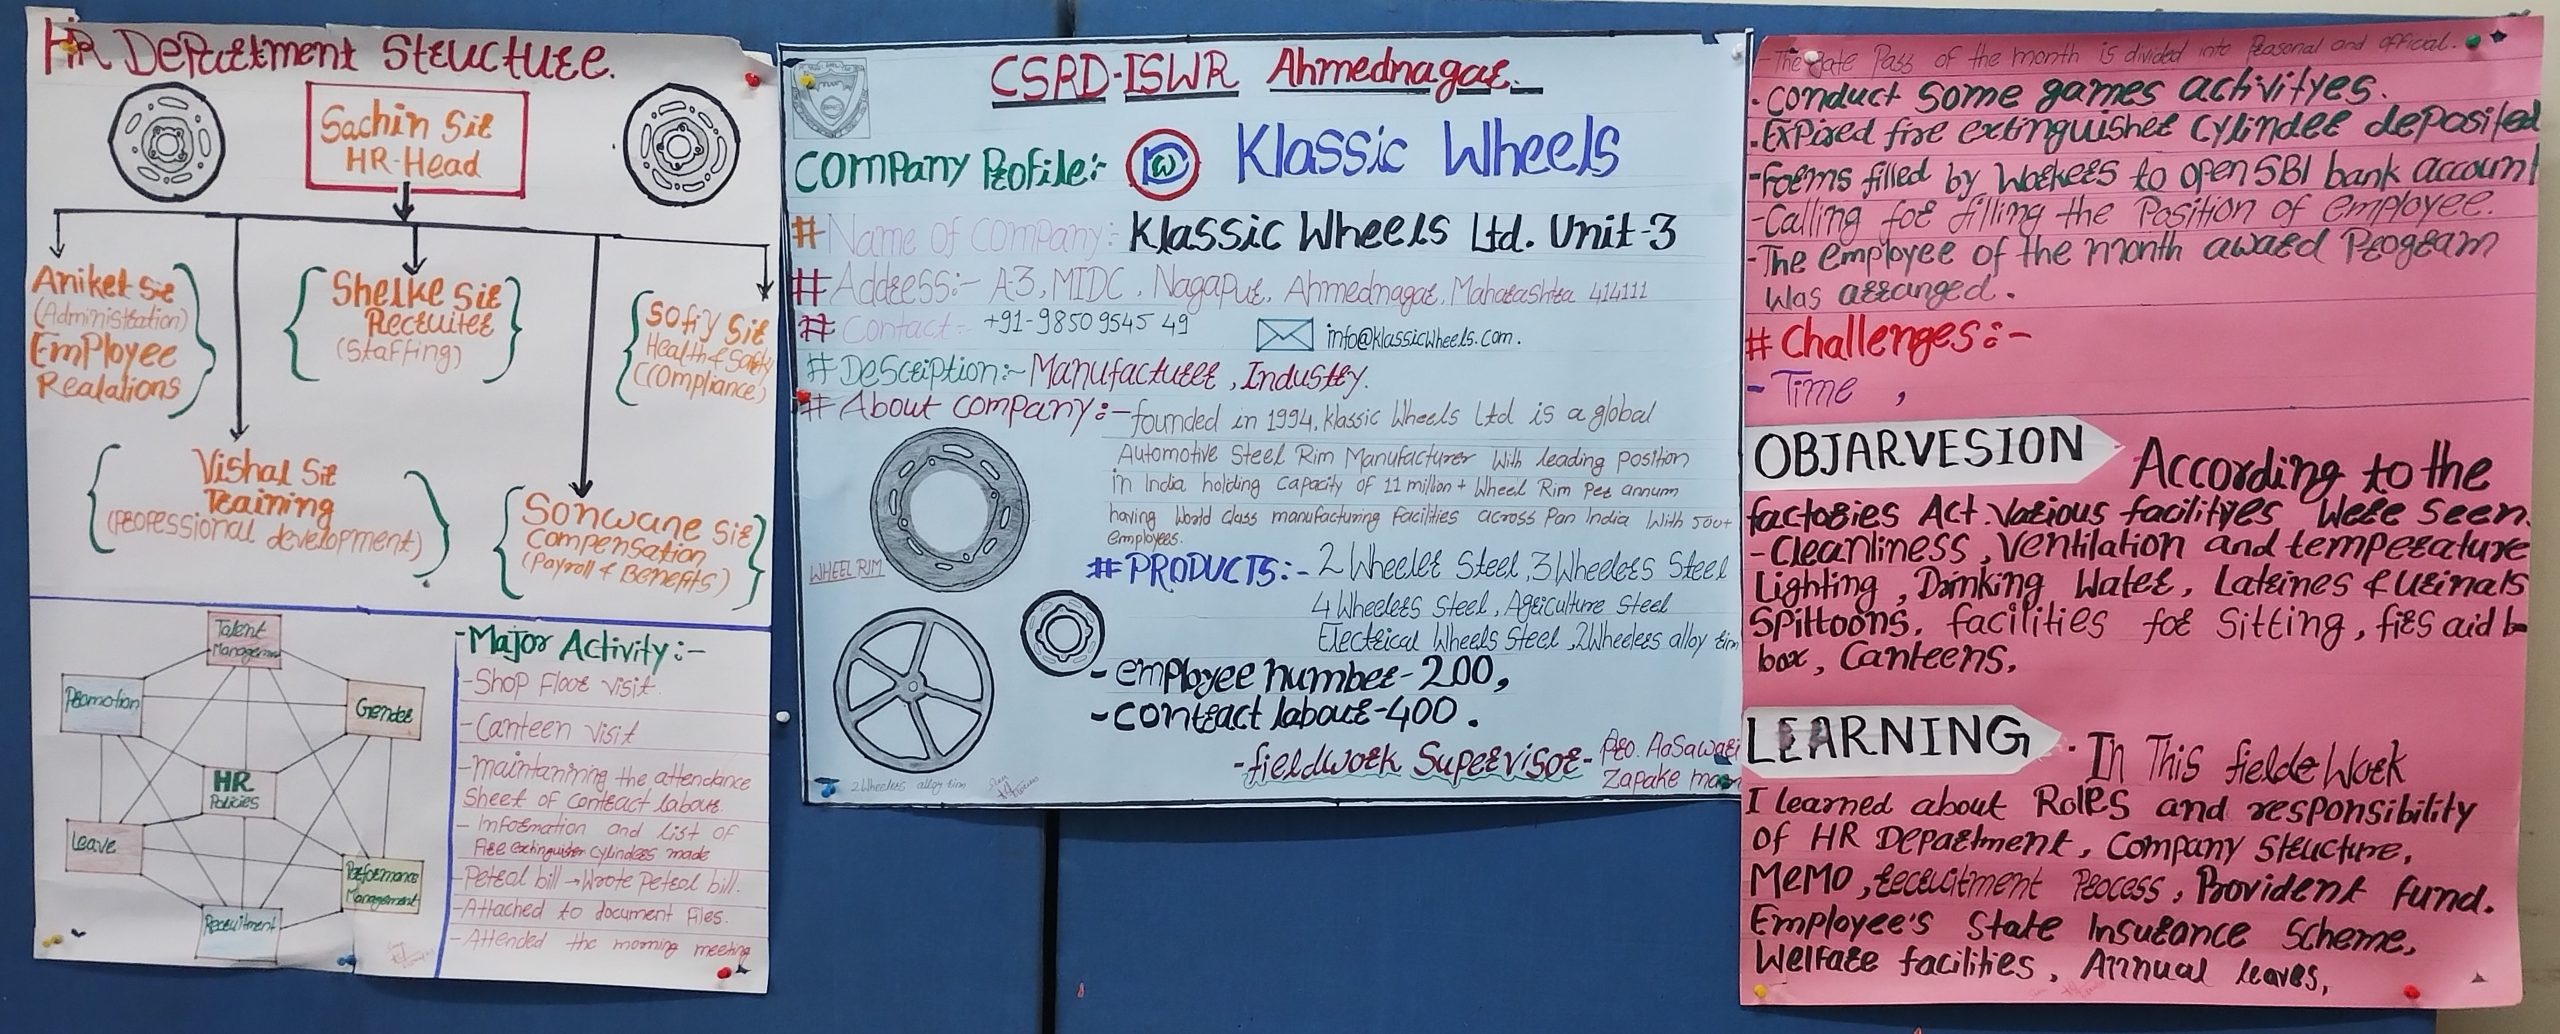 HR Department Structure.
Sachin Sir
HR-Head
Aniket Sir
(Administration)
Employee
Realations
Shelke Sir
Recruiter
(Staffing)
Sofiy Sir
Health & Safty
(Compliance)
Vishal Sir
Training
(professional development)
Sonwane Sir
Compensation
(Payroll & Benefits)
Talent
Managemen
Promotion
Gender
HR
Policies
Leave
Performance
Management
Recruitment
- Major Activity:-
- Shop Floor visit.
- Canteen visit
- maintanining the attendance
Sheet of Contract labour.
- Information and list of
Fire extinguisher cylinders made
- Petrol bill → Wrote Petrol bill.
- Attached to document files.
- Attended the morning meeting
CSRD-ISWR Ahmednagar.
Company Profile:- Klassic Wheels
# Name of Company: Klassic Wheels Ltd. Unit-3
# Address:- A-3, MIDC, Nagapur, Ahmednagar, Maharashtra 414111
# Contact:- +91-9850 9545 49 info@klassicwheels.com.
# Description:- Manufacturer, Industry.
# About company:- founded in 1994, Klassic Wheels Ltd is a global
Automotive Steel Rim Manufacturer With leading position
in India holding Capacity of 11 million + Wheel Rim Per annum
having World class manufacturing facilities across Pan India With 500+
employees.
WHEEL RIM
# PRODUCTS:- 2 Wheeler Steel, 3 Wheelers Steel
4 Wheelers Steel, Agriculture Steel
Electrical Wheels Steel, 2Wheelers alloy rim
- employee number-200,
- contract labour-400.
- fieldwork Supervisor- Pro. Aasawari
Zapake mam
2 Wheelers alloy rim
- The gate Pass of the month is divided into Peasonal and official.
. Conduct Some games activityes.
. Expired fire extinguisher Cylinder deposited
- Forms filled by Workers to open SBI bank account
- Calling for filling the Position of employee.
- The employee of the month award Program
Was arranged.
# Challenges:-
- Time,
OBJARVESION According to the
factories Act. Various facilityes Were seen.
- Cleanliness, Ventilation and temperature
Lighting, Drinking Water, Latrines & Urinals
Spittoons, facilities for Sitting, firs aid b
box, Canteens.
LEARNING. In This fielde Work
I learned about Roles and responsibility
of HR Department, Company Structure,
MEMO, recruitment Process, Provident fund.
Employee's State Insurance Scheme,
Welfare facilities, Annual leaves,